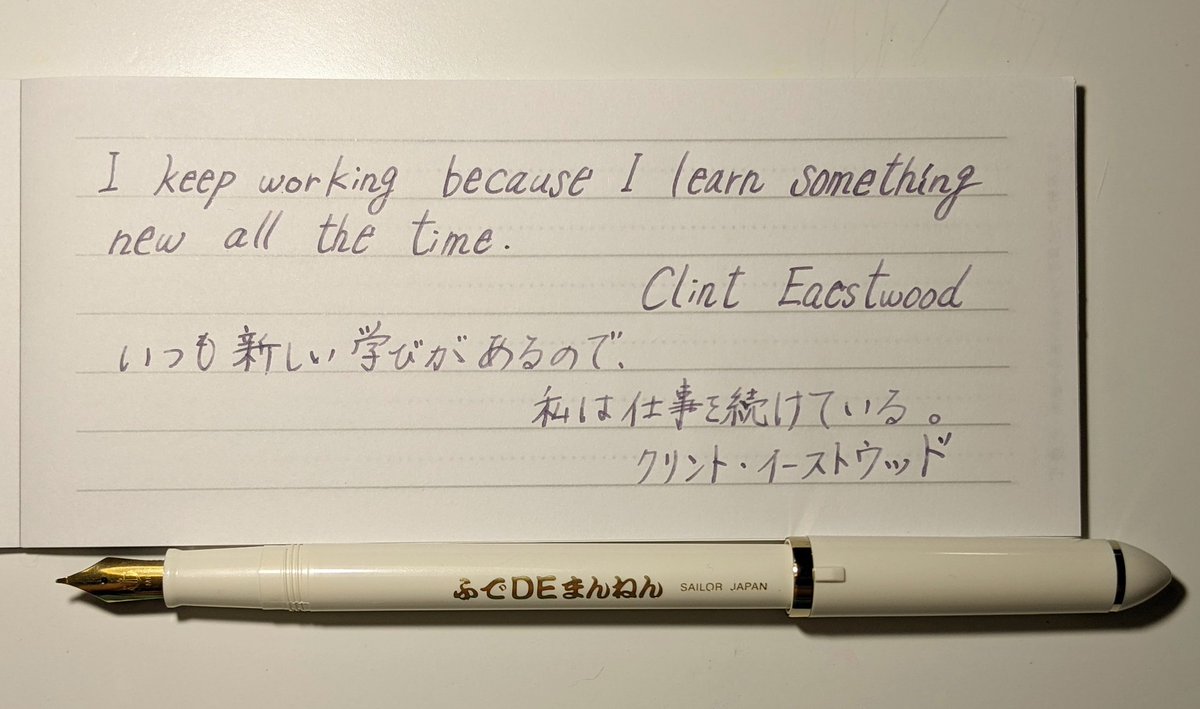 I keep working because I learn something
new all the time.
Clint Eaestwood
いつも新しい学びがあるので、
私は仕事を続けている。
クリント・イーストウッド
ふでDEまんねん SAILOR JAPAN